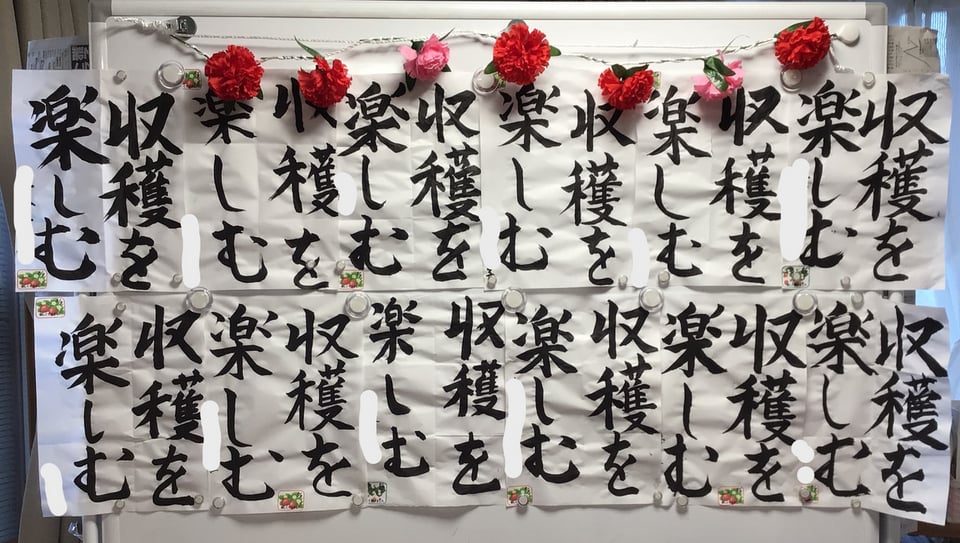 収穫を
楽しむ
収穫を
楽しむ
収穫を
楽しむ
収穫を
楽しむ
収穫を
楽しむ
収穫を
楽しむ
収穫を
楽しむ
収穫を
楽しむ
収穫を
楽しむ
収穫を
楽しむ
収穫を
楽しむ
収穫を
楽しむ